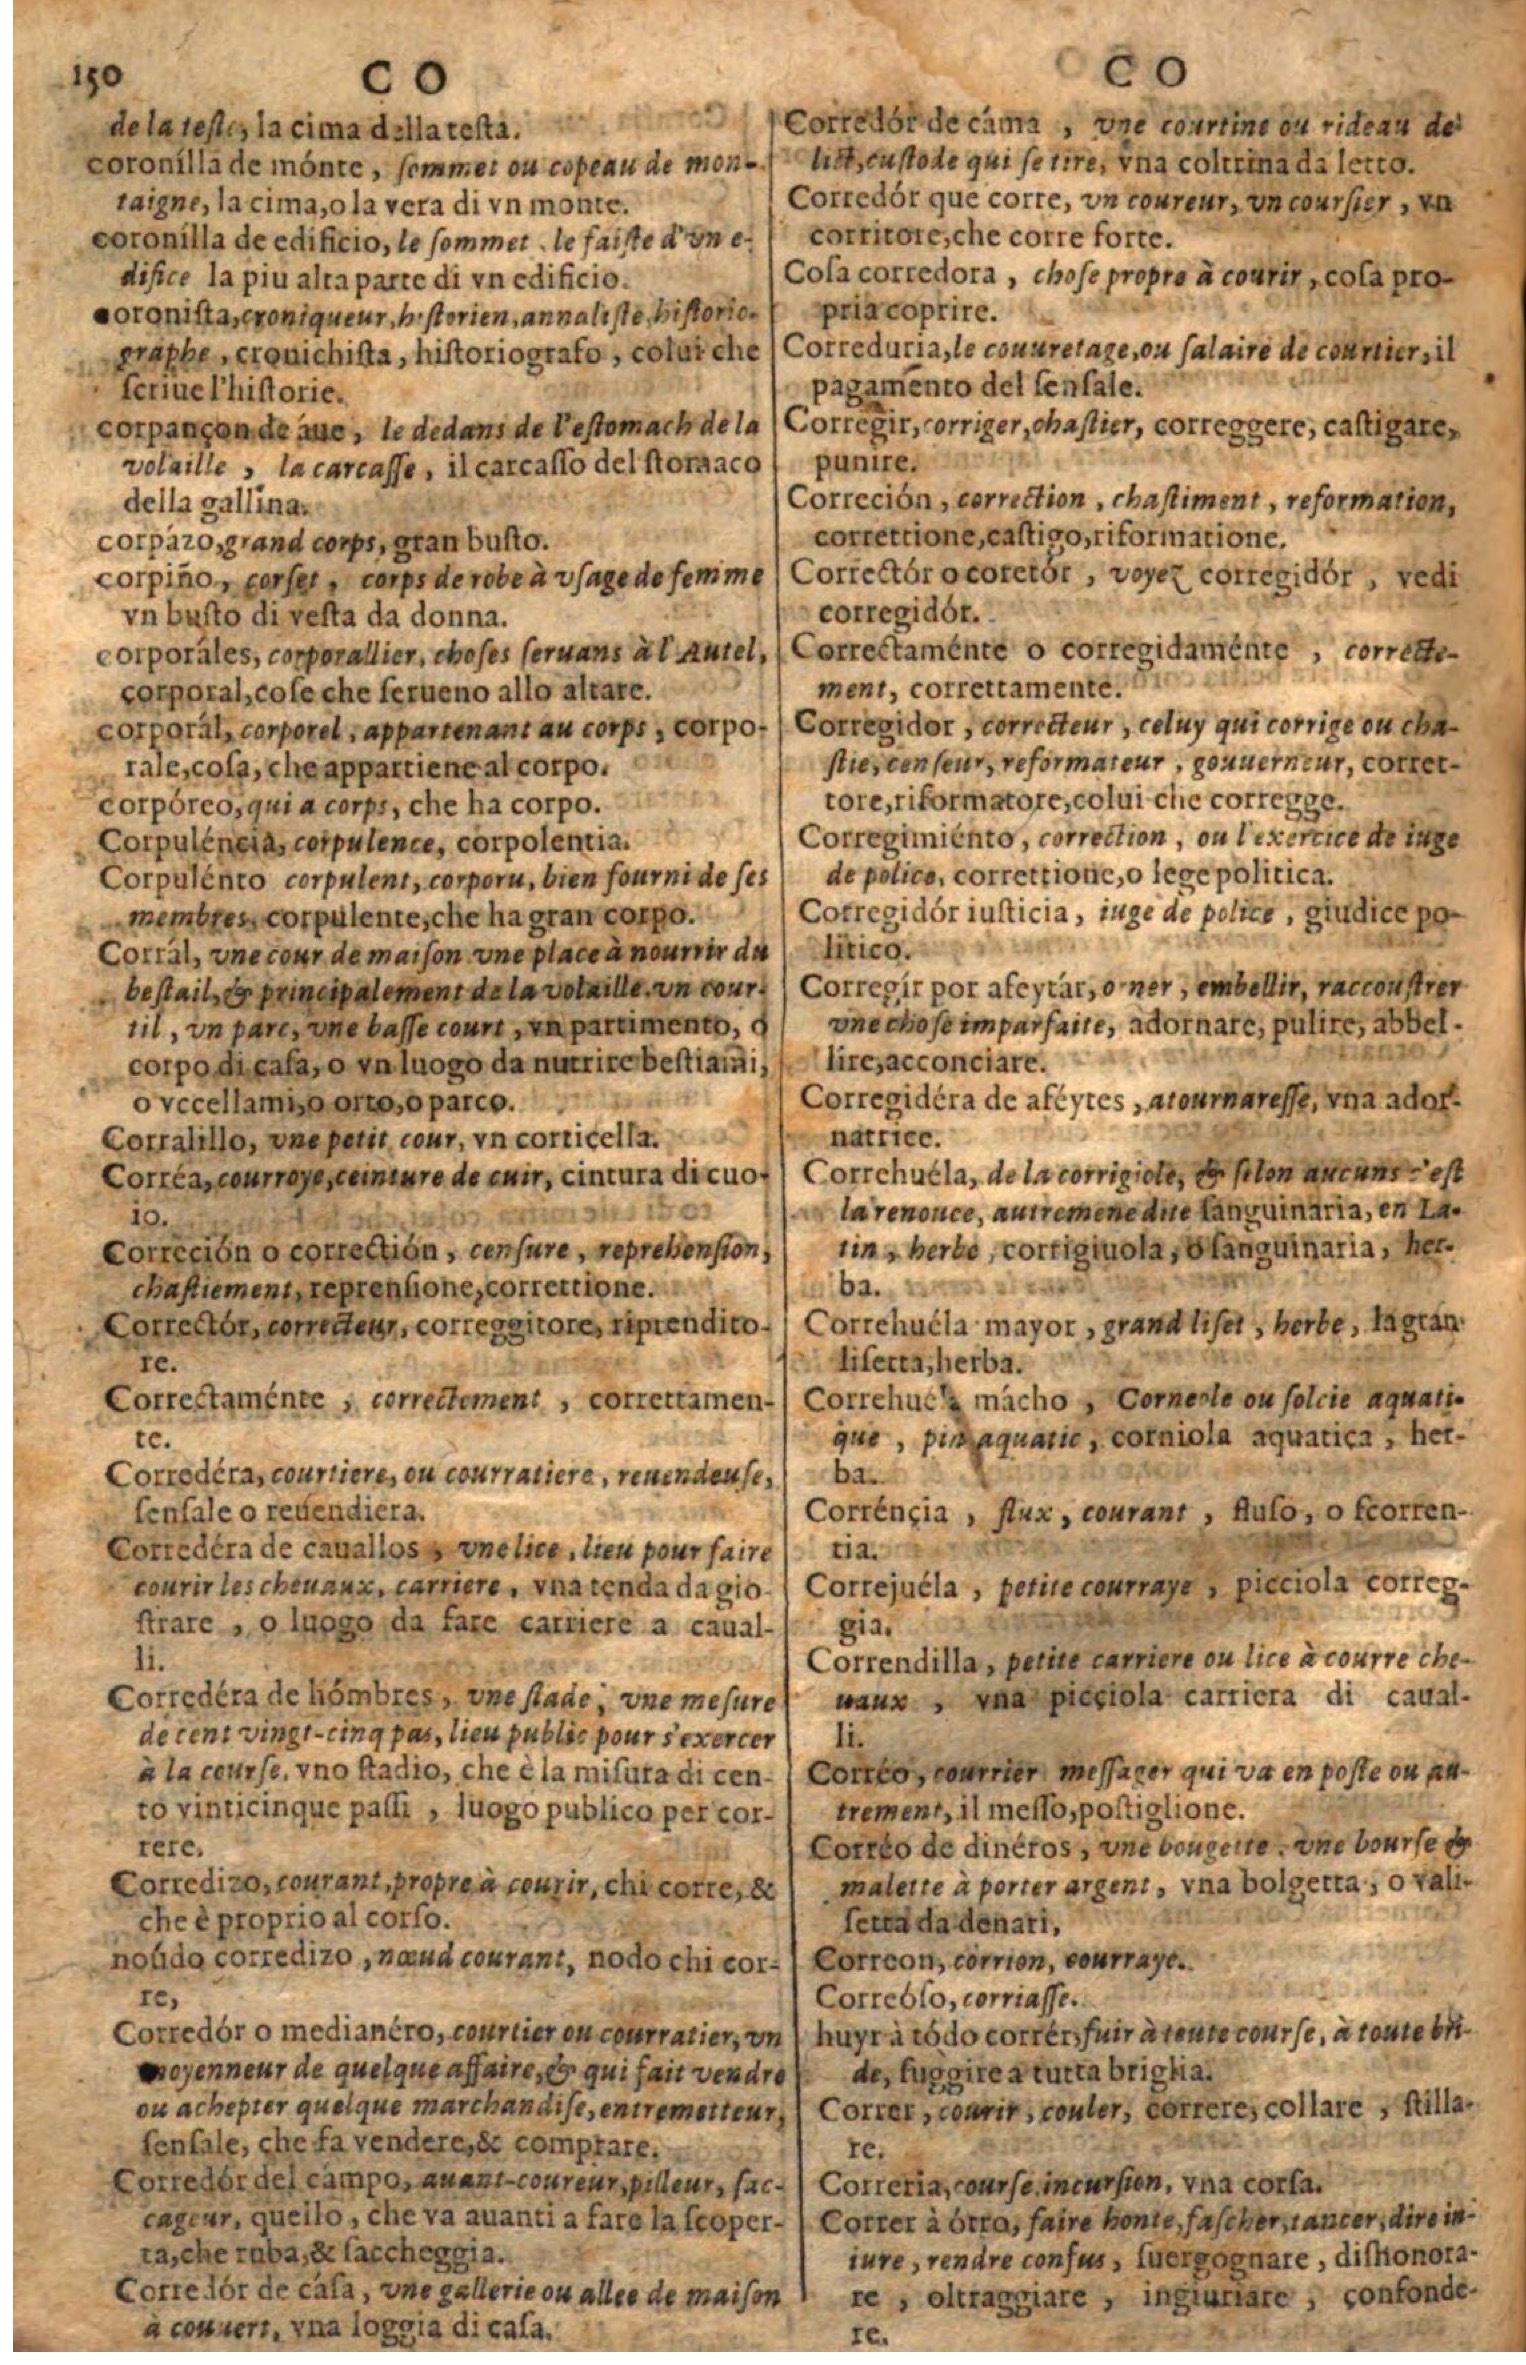 150
C O
de la teste, la cima della testa.
coronílla de mónte, sommet ou copeau de mon-
taigne, la cima, o la vera di vn monte.
coronílla de edificio, le sommet, le faiste d'vn e-
difice la piu alta parte di vn edificio.
coronista, croniqueur, historien, annaliste, historio-
graphe, cronichista, historiografo, colui che
scriue l'historie.
corpançon de áue, le dedans de l'estomach de la
volaille, la carcasse, il carcasso del stomaco
della gallina.
corpázo, grand corps, gran busto.
corpiño, corset, corps de robe à vsage de femme
vn busto di vesta da donna.
corporáles, corporallier, choses seruans à l'Autel,
corporal, cose che serueno allo altare.
corporál, corporel, appartenant au corps, corpo-
rale, cosa, che appartiene al corpo.
corpóreo, qui a corps, che ha corpo.
Corpuléncia, corpulence, corpolentia.
Corpulénto corpulent, corporu, bien fourni de ses
membres, corpulente, che ha gran corpo.
Corrál, vne cour de maison vne place à nourrir du
bestail, & principalement de la volaille, vn cour-
til, vn parc, vne basse court, vn partimento, o
corpo di casa, o vn luogo da nutrire bestiami,
o vccellami, o orto, o parco.
Corralillo, vne petit cour, vn corticella.
Corréa, courroye, ceinture de cuir, cintura di cuo-
io.
Correción o correctión, censure, reprehension,
chastiement, reprensione, correttione.
Corrector, correcteur, correggitore, riprendito-
re.
Correctaménte, correctement, correttamen-
te.
Corredéra, courtiere, ou courratiere, reuendeuse,
sensale o reuendiera.
Corredéra de cauallos, vne lice, lieu pour faire
courir les cheuaux, carriere, vna tenda da gio-
strare, o luogo da fare carriere a caual-
li.
Corredéra de hómbres, vne stade, vne mesure
de cent vingt-cinq pas, lieu public pour s'exercer
à la course, vno stadio, che è la misura di cen-
to vinticinque passi, luogo publico per cor-
rere.
Corredizo, courant, propre à courir, chi corre, &
che è proprio al corso.
noúdo corredizo, nœud courant, nodo chi cor-
re,
Corredór o medianéro, courtier ou courratier, vn
moyenneur de quelque affaire, & qui fait vendre
ou achepter quelque marchandise, entremetteur,
sensale, che fa vendere, & comprare.
Corredór del cámpo, auant-coureur, pilleur, sac-
cageur, quello, che va auanti a fare la scoper-
ta, che ruba, & saccheggia.
Corredór de cása, vne gallerie ou allee de maison
à couuert, vna loggia di casa.
C O
Corredór de cáma, vne courtine ou rideau de
lict, custode qui se tire, vna coltrina da letto.
Corredór que corre, vn coureur, vn coursier, vn
corritore, che corre forte.
Cosa corredora, chose propre à courir, cosa pro-
pria coprire.
Correduria, le couuretage, ou salaire de courtier, il
pagamento del sensale.
Corregir, corriger, chastier, correggere, castigare,
punire.
Correción, correction, chastiment, reformation,
correttione, castigo, riformatione.
Correctór o coretór, voyez corregidór, vedi
corregidór.
Correctaménte o corregidaménte, correcte-
ment, correttamente.
Corregidor, correcteur, celuy qui corrige ou cha-
stie, censeur, reformateur, gouuerneur, corret-
tore, riformatore, colui che corregge.
Corregimiénto, correction, ou l'exercice de iuge
de police, correttione, o lege politica.
Corregidór iusticia, iuge de police, giudice po-
litico.
Corregir por afeytár, orner, embellir, raccoustrer
vne chose imparfaite, adornare, pulire, abbel-
lire, acconciare.
Corregidéra de aféytes, atournaresse, vna ador-
natrice.
Correhuéla, de la corrigiole, & selon aucuns c'est
la renouce, autremene dite sanguinaria, en La-
tin, herbe, corrigiuola, o sanguinaria, her-
ba.
Correhuéla mayor, grand liset, herbe, la gran
lisetta, herba.
Correhuéla mácho, Corneole ou solcie aquati-
que, pin aquatic, corniola aquatica, her-
ba.
Corrénçia, flux, courant, fluso, o scorren-
tia.
Correjuéla, petite courraye, picciola correg-
gia.
Correndilla, petite carriere ou lice à courre che-
uaux, vna picciola carriera di caual-
li.
Corréo, courrier messager qui va en poste ou au-
trement, il messo, postiglione.
Corréo de dinéros, vne bougette, vne bourse &
malette à porter argent, vna bolgetta, o vali-
setta da denari,
Correon, corrion, courraye.
Correóso, corriasse.
huyr à tódo corrér, fuir à toute course, à toute bri-
de, fuggire a tutta briglia.
Correr, courir, couler, correre, collare, stilla-
re.
Correria, course, incursion, vna corsa.
Correr à ótro, faire honte, fascher, tancer, dire in-
iure, rendre confus, suergognare, dishonora-
re, oltraggiare, ingiuriare, confonde-
re.